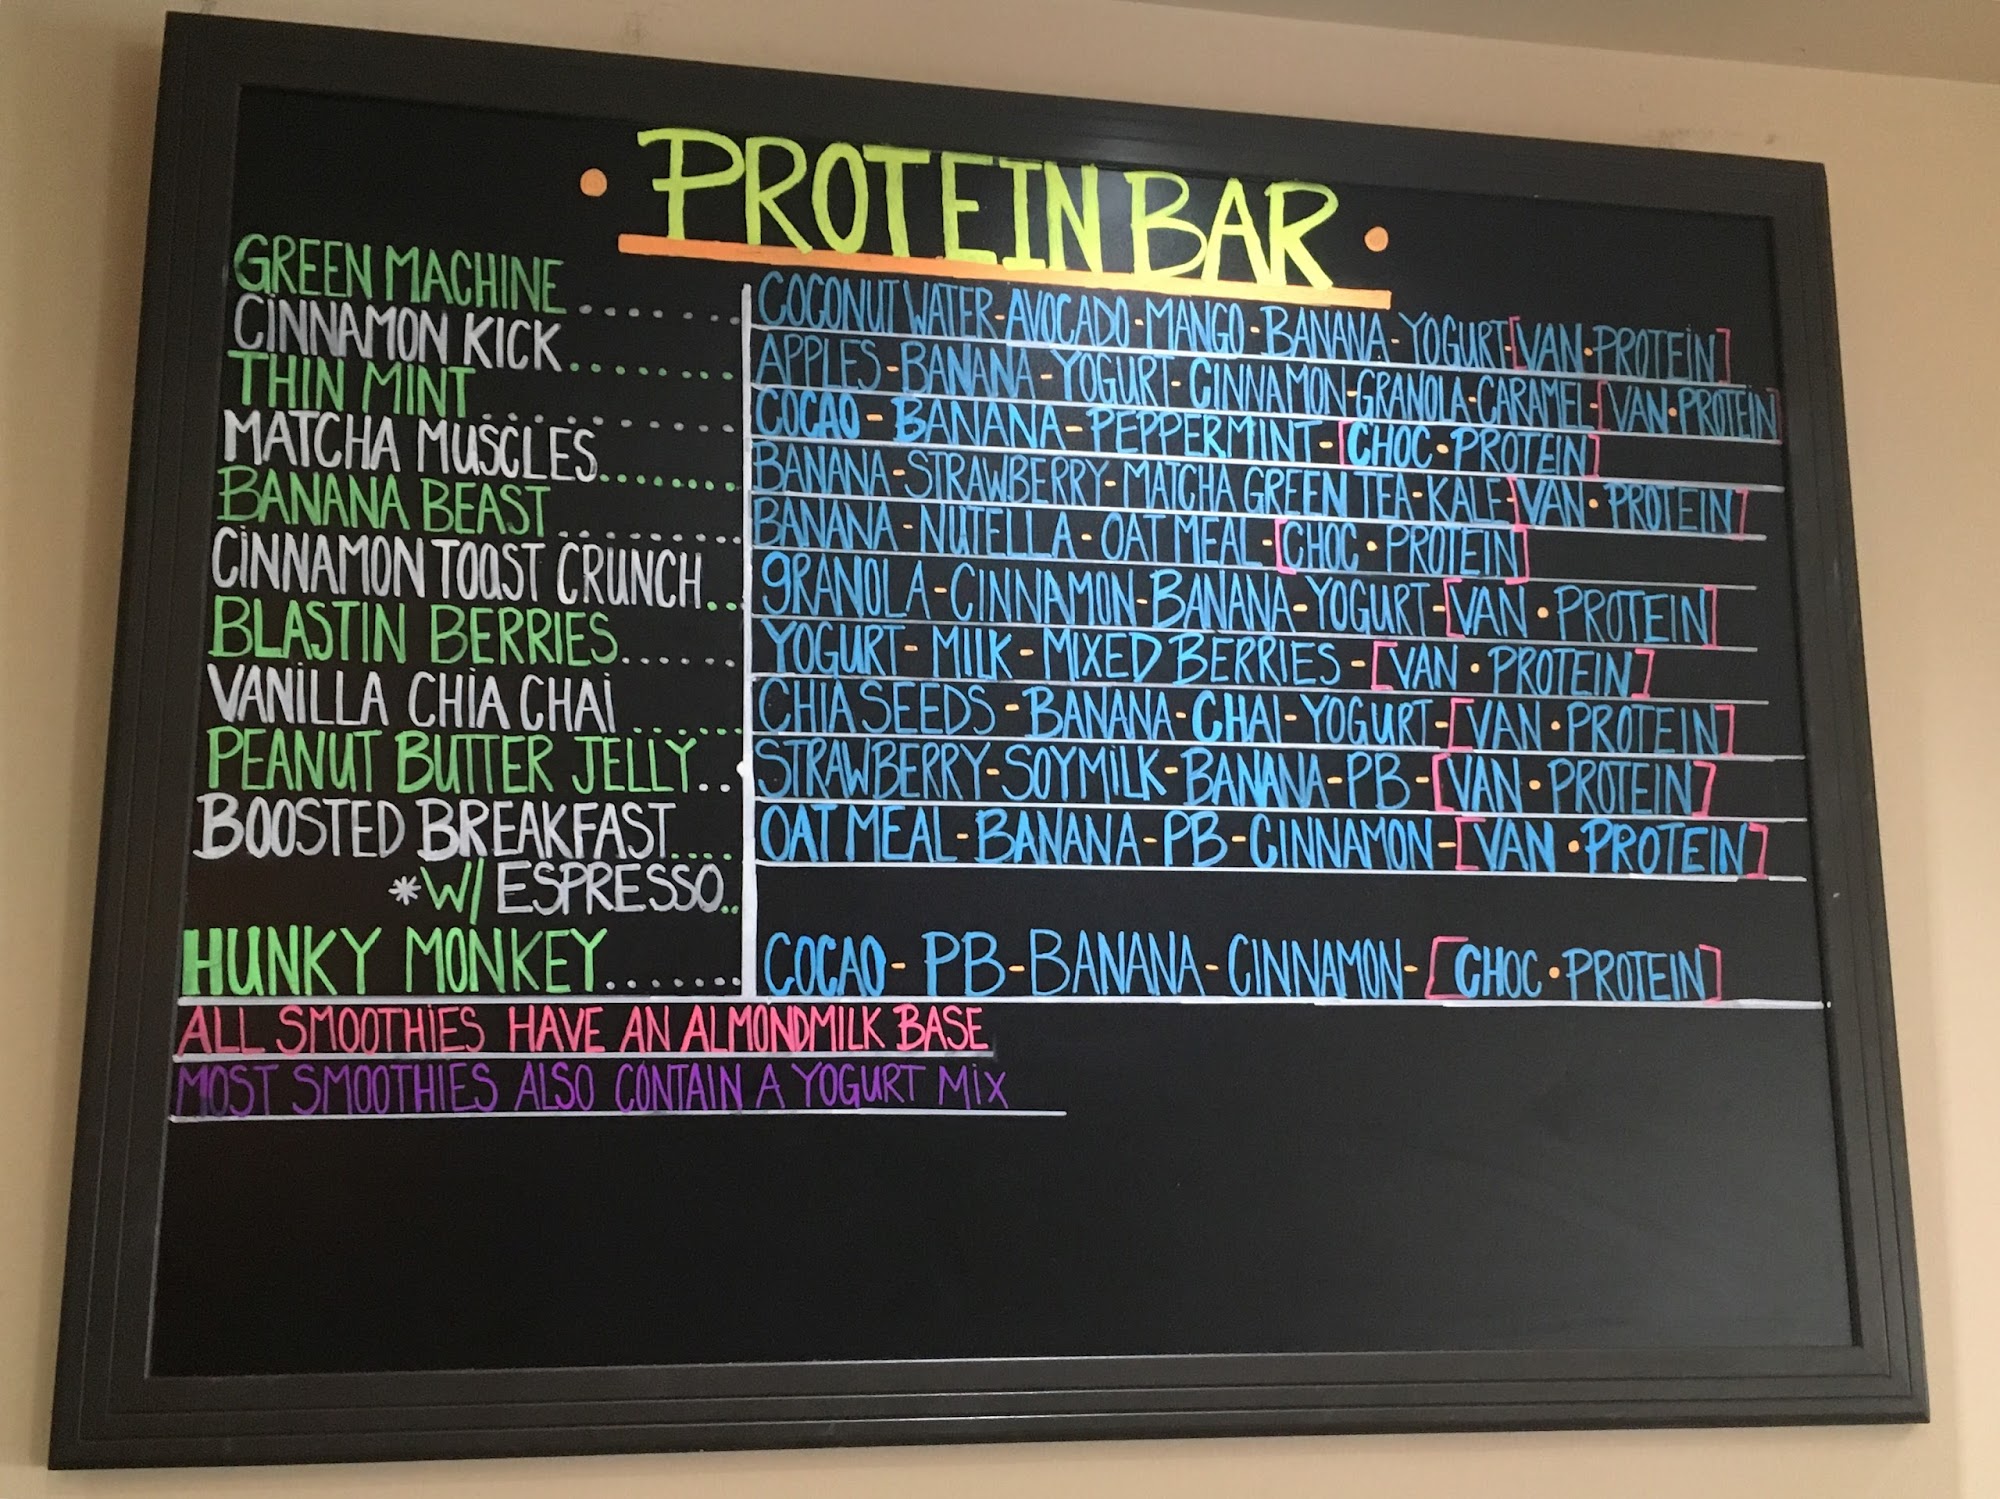 • PROTEIN BAR •
GREEN MACHINE ........ COCONUT WATER-AVOCADO-MANGO-BANANA-YOGURT-[VAN•PROTEIN]
CINNAMON KICK ........ APPLES-BANANA-YOGURT-CINNAMON-GRANOLA-CARAMEL-[VAN•PROTEIN]
THIN MINT ........ COCAO-BANANA-PEPPERMINT-[CHOC•PROTEIN]
MATCHA MUSCLES ........ BANANA-STRAWBERRY-MATCHA GREEN TEA-KALE-[VAN•PROTEIN]
BANANA BEAST ........ BANANA-NUTELLA-OATMEAL-[CHOC•PROTEIN]
CINNAMON TOAST CRUNCH.. GRANOLA-CINNAMON-BANANA-YOGURT-[VAN•PROTEIN]
BLASTIN BERRIES...... YOGURT-MILK-MIXED BERRIES-[VAN•PROTEIN]
VANILLA CHIA CHAI ...... CHIA SEEDS-BANANA-CHAI-YOGURT-[VAN•PROTEIN]
PEANUT BUTTER JELLY.. STRAWBERRY-SOYMILK-BANANA-PB-[VAN•PROTEIN]
BOOSTED BREAKFAST.... OATMEAL-BANANA-PB-CINNAMON-[VAN•PROTEIN]
*W/ ESPRESSO..
HUNKY MONKEY....... COCAO-PB-BANANA-CINNAMON-[CHOC•PROTEIN]
ALL SMOOTHIES HAVE AN ALMONDMILK BASE
MOST SMOOTHIES ALSO CONTAIN A YOGURT MIX